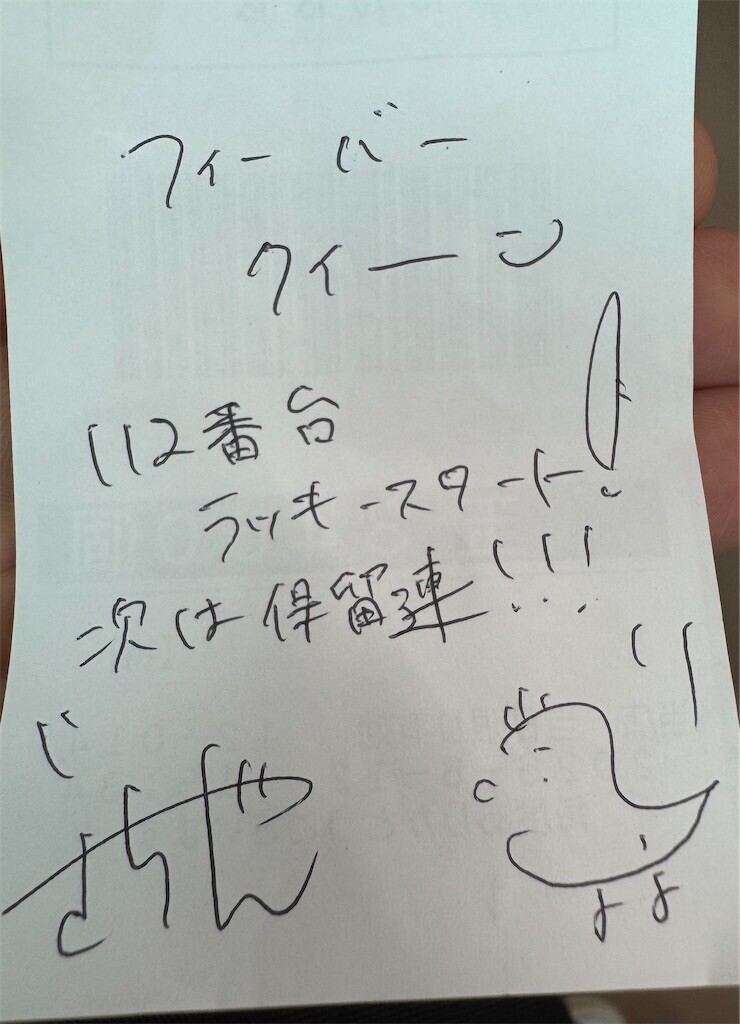 フィーバー
クィーン
112番台
ラッキースタート!
次は保留連!!!